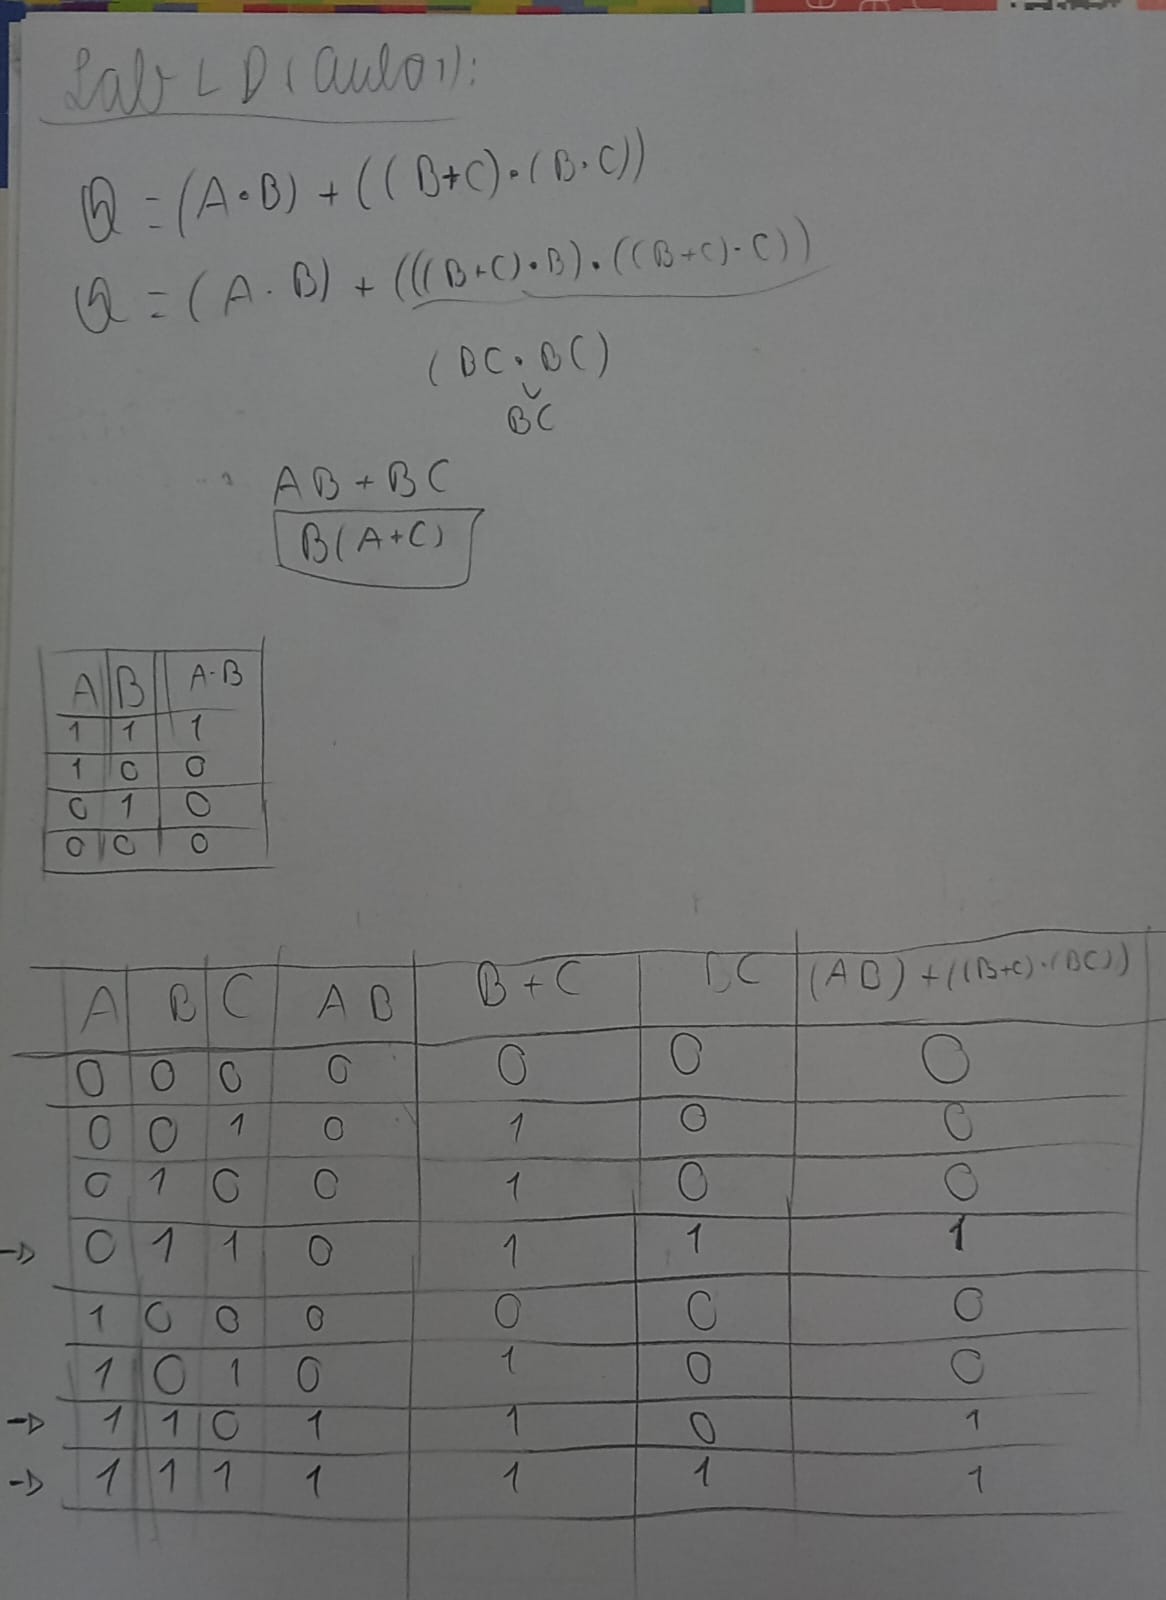 Lab LD (aula 1):
Q = (A·B) + ((B+C)·(B·C))
Q = (A·B) + (((B+C)·B)·((B+C)·C))
(BC·BC)
BC
AB + BC
B(A+C)
A B A·B
1 1 1
1 0 0
0 1 0
0 0 0
A B C AB B+C BC (AB) + ((B+C)·(BC))
0 0 0 0 0 0 0
0 0 1 0 1 0 0
0 1 0 0 1 0 0
→ 0 1 1 0 1 1 1
1 0 0 0 0 0 0
1 0 1 0 1 0 0
→ 1 1 0 1 1 0 1
→ 1 1 1 1 1 1 1